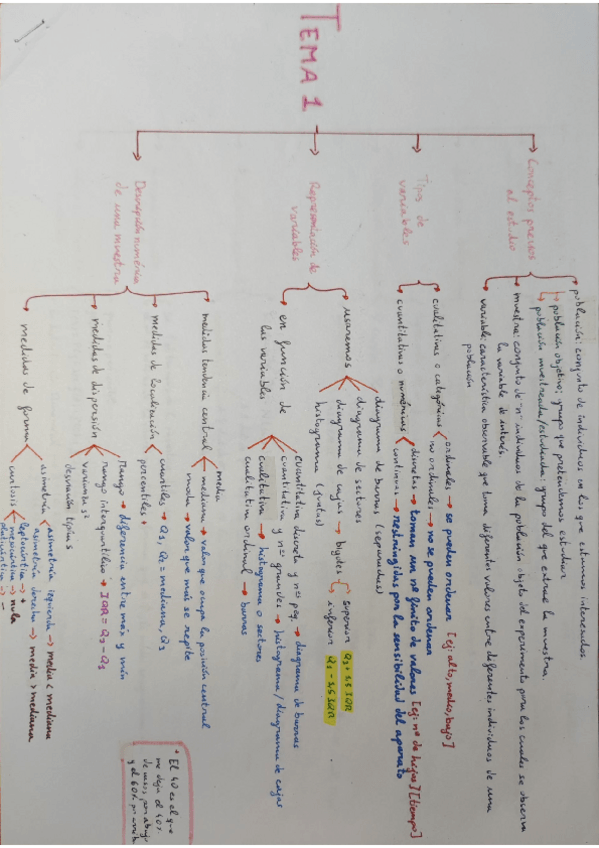 TEMA 1
Conceptos previos
al estudio
población: conjunto de individuos en los que estamos interesados
población objetivo: grupo que pretendemos estudiar
población muestreada/estudiada: grupo del que extrae la muestra.
muestra: conjunto de "n" individuos de la población objeto del experimento para los cuales se observa
la variable de interés.
variable: característica observable que toma diferentes valores entre diferentes individuos de una
población
Tipos de
variables
cualitativas o categóricas
ordinales → se pueden ordenar [ej: alto, medio, bajo]
no ordinales → no se pueden ordenar
cuantitativas o numéricas
discretas → toman un nº finito de valores [ej: nº de hijos] [tiempo]
continuas → restringidas por la sensibilidad del aparato
Representación de
variables
usaremos
diagrama de barras (separadas)
diagrama de sectores
diagrama de cajas → bigotes
superior Q3 + 1.5 IQR
inferior Q1 - 1.5 IQR
histograma (juntas)
en función de
las variables
cuantitativa discreta y nºs peq. → diagrama de barras
cuantitativa y nºs grandes → histograma / diagrama de cajas
cualitativa → histograma o sectores
cualitativa ordinal → barras
Descripción numérica
de una muestra
medidas tendencia central
media
mediana → valor que ocupa la posición central
moda → valor que más se repite
medidas de localización
cuartiles → Q1, Q2 = mediana, Q3
percentiles *
medidas de dispersión
rango → diferencia entre máx y mín
rango intercuartílico → IQR = Q3 - Q1
varianza s²
desviación típica s
medidas de forma
asimetría
asimetría izquierda → media < mediana
asimetría derecha → media > mediana
curtosis
leptocúrtica → +
mesocúrtica → nula
platicúrtica → -
* El 40 es el que
me deja el 40%
de casos por abajo
y el 60% por arriba